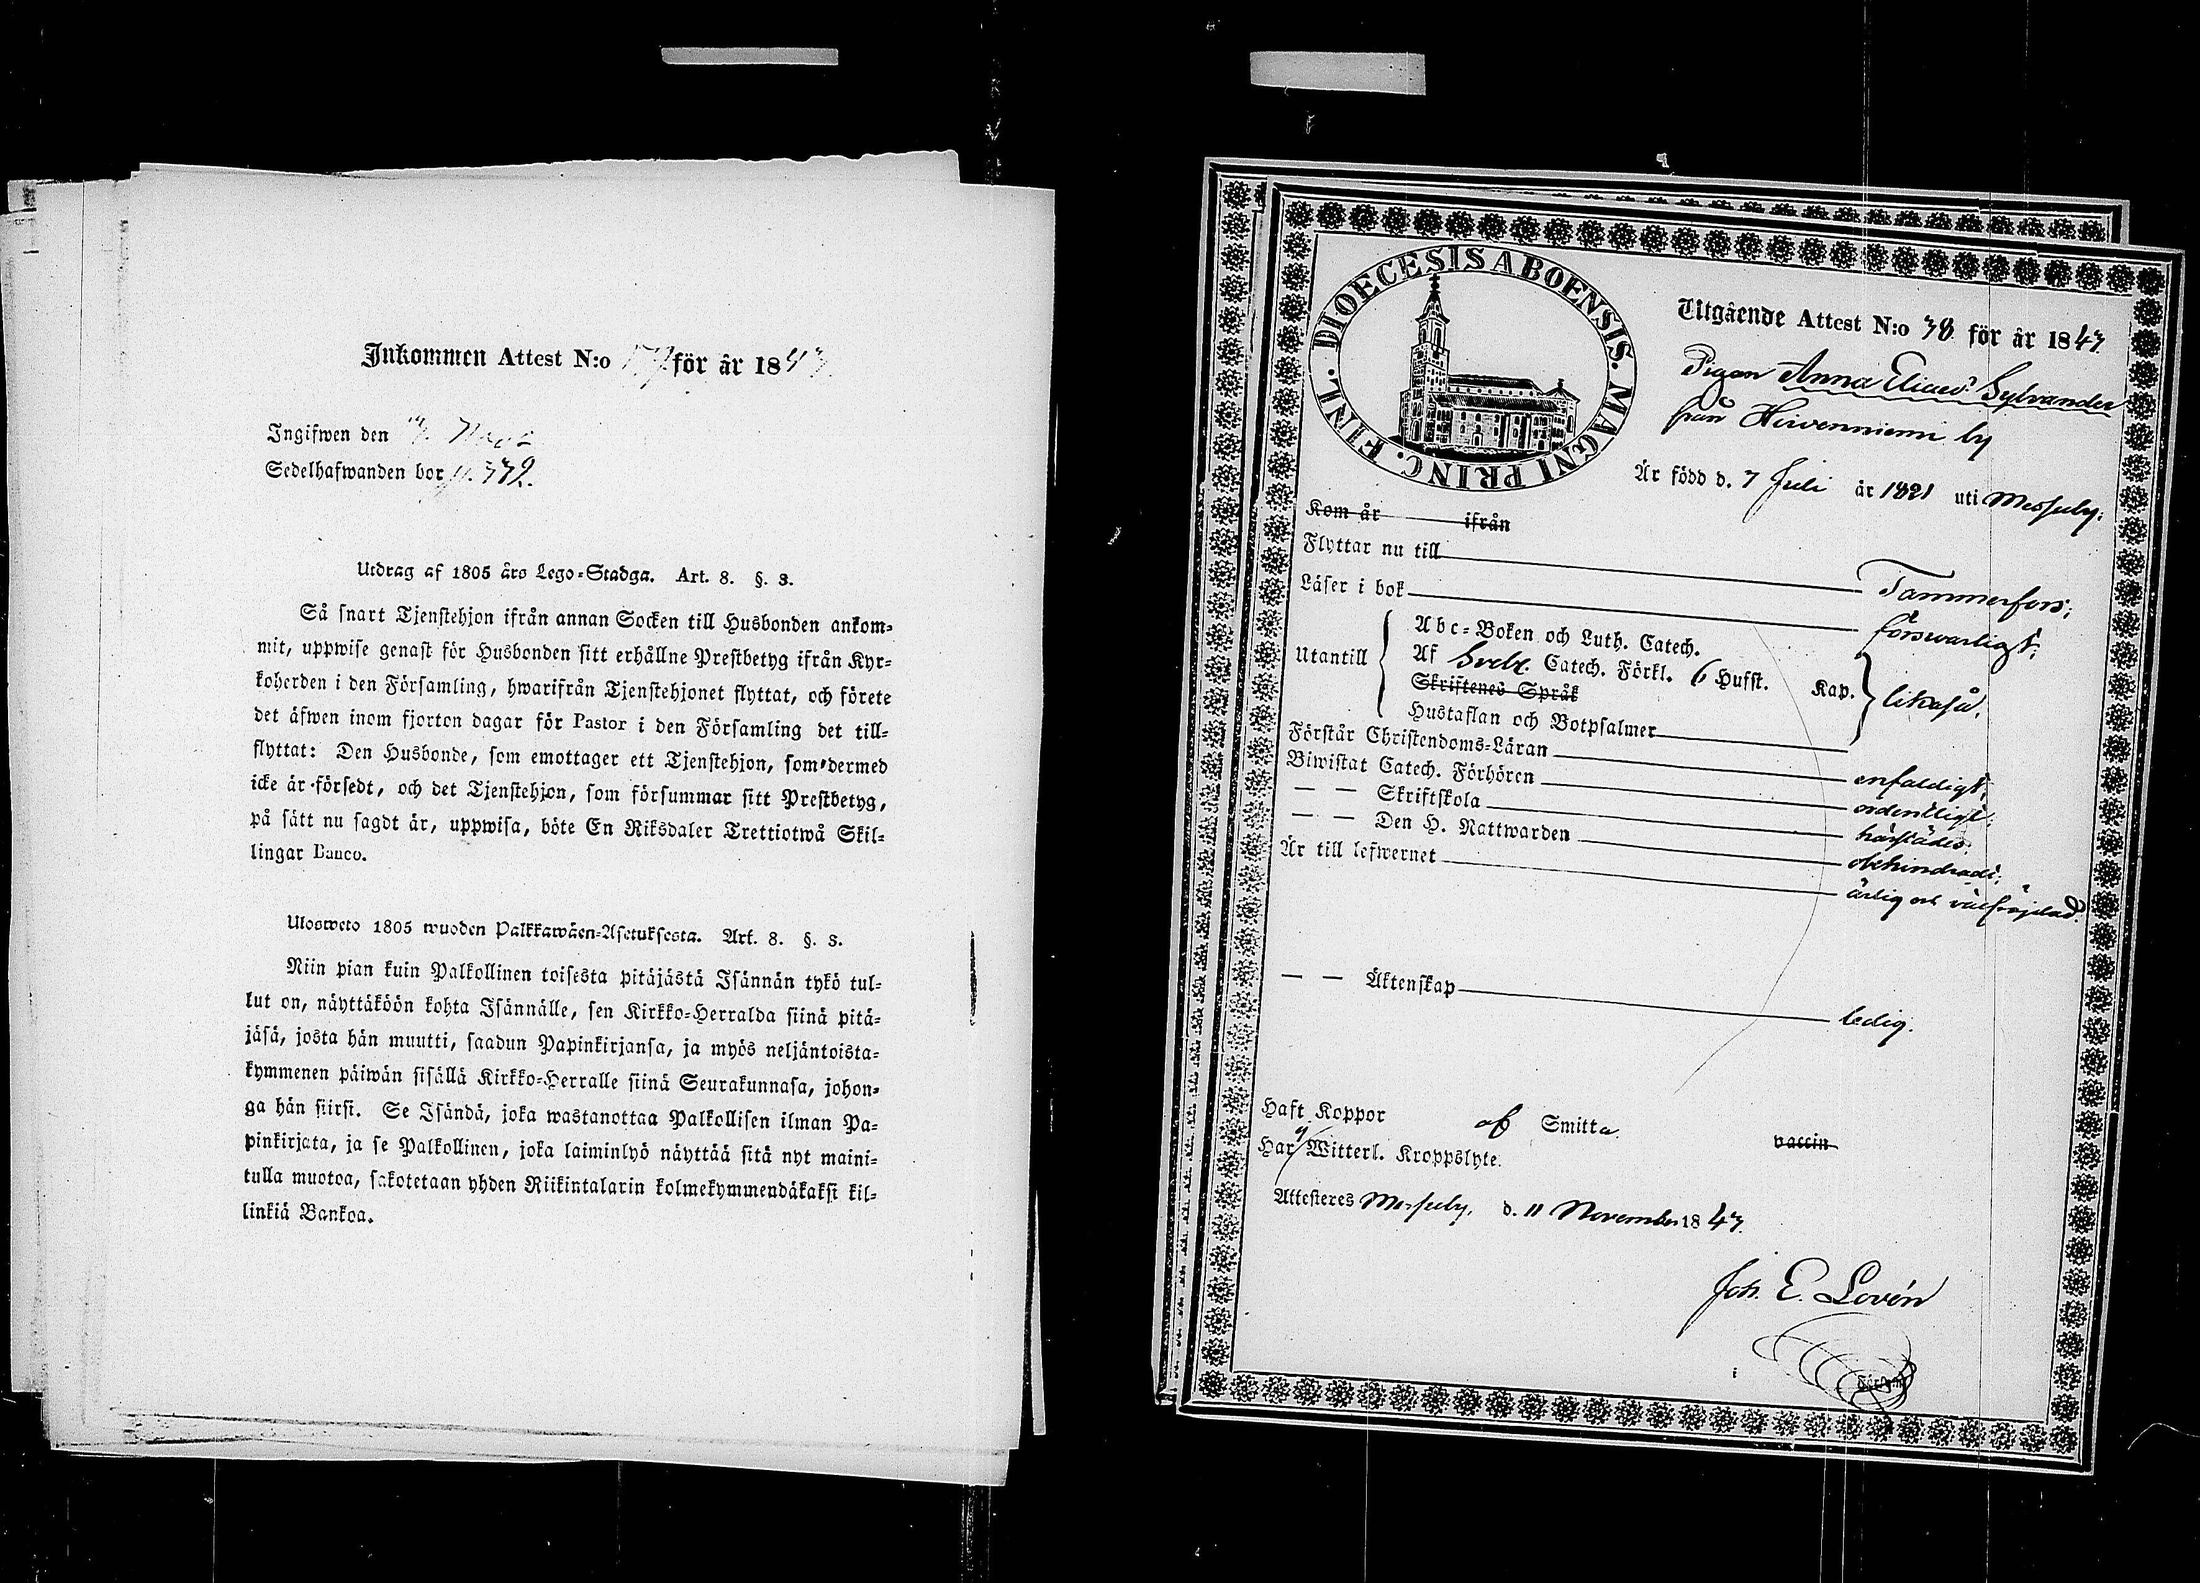 Inkommen Attest N:o för år 18
Ingifwen den
Sedelhafwanden bor 332.
Utdrag af 1805 års Lego-Stadga. Art. 8. §. 3.
Så snart Tjenstehjon ifrån annan Socken till Husbonden ankom-
mit, uppwise genast för Husbonden sitt erhållne Prestbetyg ifrån Kyr-
koherden i den Församling, hwarifrån Tjenstehjonet flyttat, och förete
det äfwen inom fjorton dagar för Pastor i den Församling det till-
flyttat: Den Husbonde, som emottager ett Tjenstehjon, som dermed
icke är försedt, och det Tjenstehjon, som försummar sitt Prestbetyg,
på sätt nu sagdt är, uppwisa, böte En Riksdaler Trettiotwå Skil-
lingar Banco.
Ulosweto 1805 wuoden Palkkawäen-Asetuksesta. Art. 8. §. 3.
Niin pian kuin Palkollinen toisesta pitäjästä Isännän tykö tul-
lut on, näyttäköön kohta Isännälle, sen Kirkko-Herralda siinä pitä-
jäsä, josta hän muutti, saadun Papinkirjansa, ja myös neljäntoista-
kymmenen päiwän sisällä Kirkko-Herralle siinä Seurakunnasa, johon-
ga hän siirsi. Se Isändä, joka wastanottaa Palkollisen ilman Pa-
pinkirjata, ja se Palkollinen, joka laiminlyö näyttää sitä nyt maini-
tulla muotoa, sakotetaan yhden Riikintalarin kolmekymmendäkaksi kil-
linkiä Bankoa.
DIOECESIS ABOENSIS. MAGNI PRINC. FINL.
Utgående Attest N:o 38 för år 1843
Pigan Anna Eliaed:r Sylvander
från Hirvenniemi by
Är född d. 7 Juli år 1821 uti Messuby;
Kom år ifrån
Flyttar nu till Tammerfors;
Läser i bok försvarligt;
Utantill
Abc-Boken och Luth. Catech.
Af Svebl. Catech. Förkl. 6 Hufst. Kap.
Skriftenes Språk
Hustaflan och Botpsalmer
likaså;
Förstår Christendoms-Läran enfaldigt;
Biwistat Catech. Förhören ordentligt;
— — Skriftskola härstädes;
— — Den H. Nattwarden obehindradt;
Är till lefwernet ärlig och välfrejdad.
— — Äktenskap ledig.
Haft Koppor af Smitta. vaccin
Har Witterl. Kroppslyte.
Attesteres Messuby, d. 11 November 1843.
Joh. E. Lovén